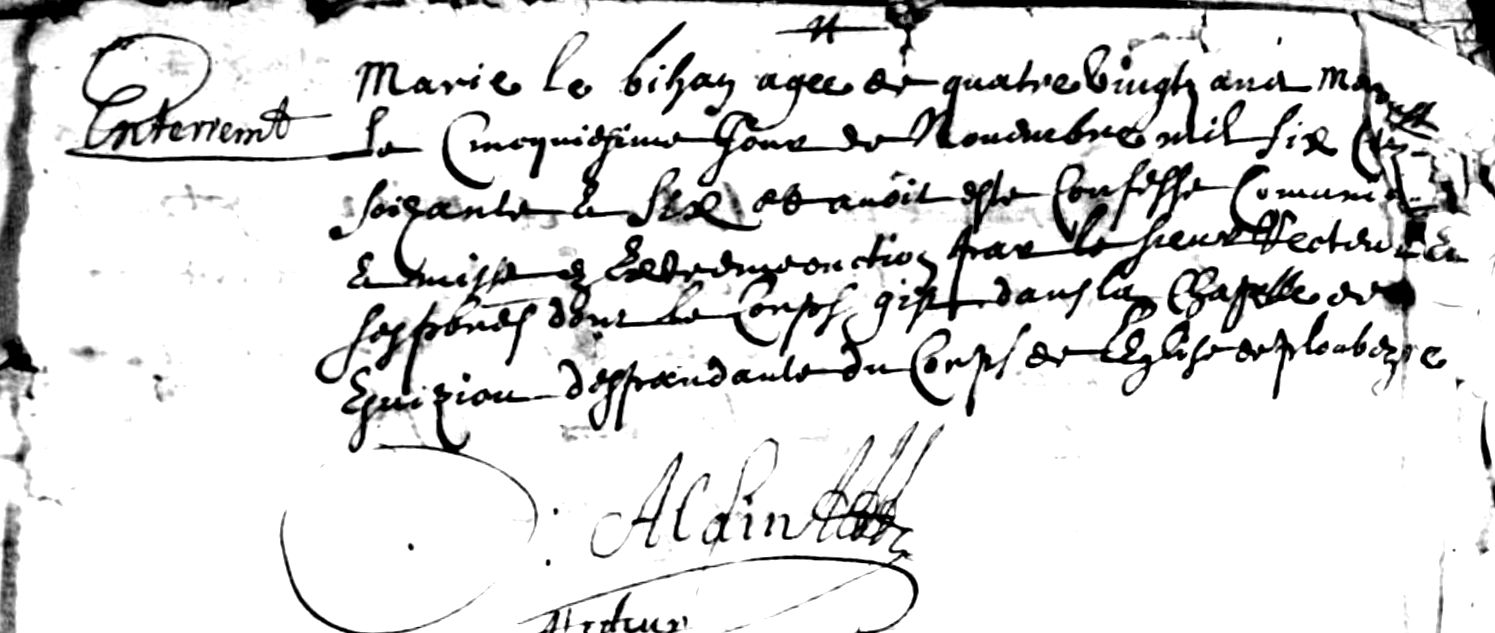 Enterremt
Marie le bihan agee de quatre vingtz ans
le Cincquiesme Jour de Nouembre mil six
soixante & six et auoit este Confesse Comuni
& mise en Extremeonction par le sieur Recteur &
ses pbres dont le Corps gist dans la Chapelle de
despandante du Corps de l'Eglise de ploubezre
Alain
Recteur